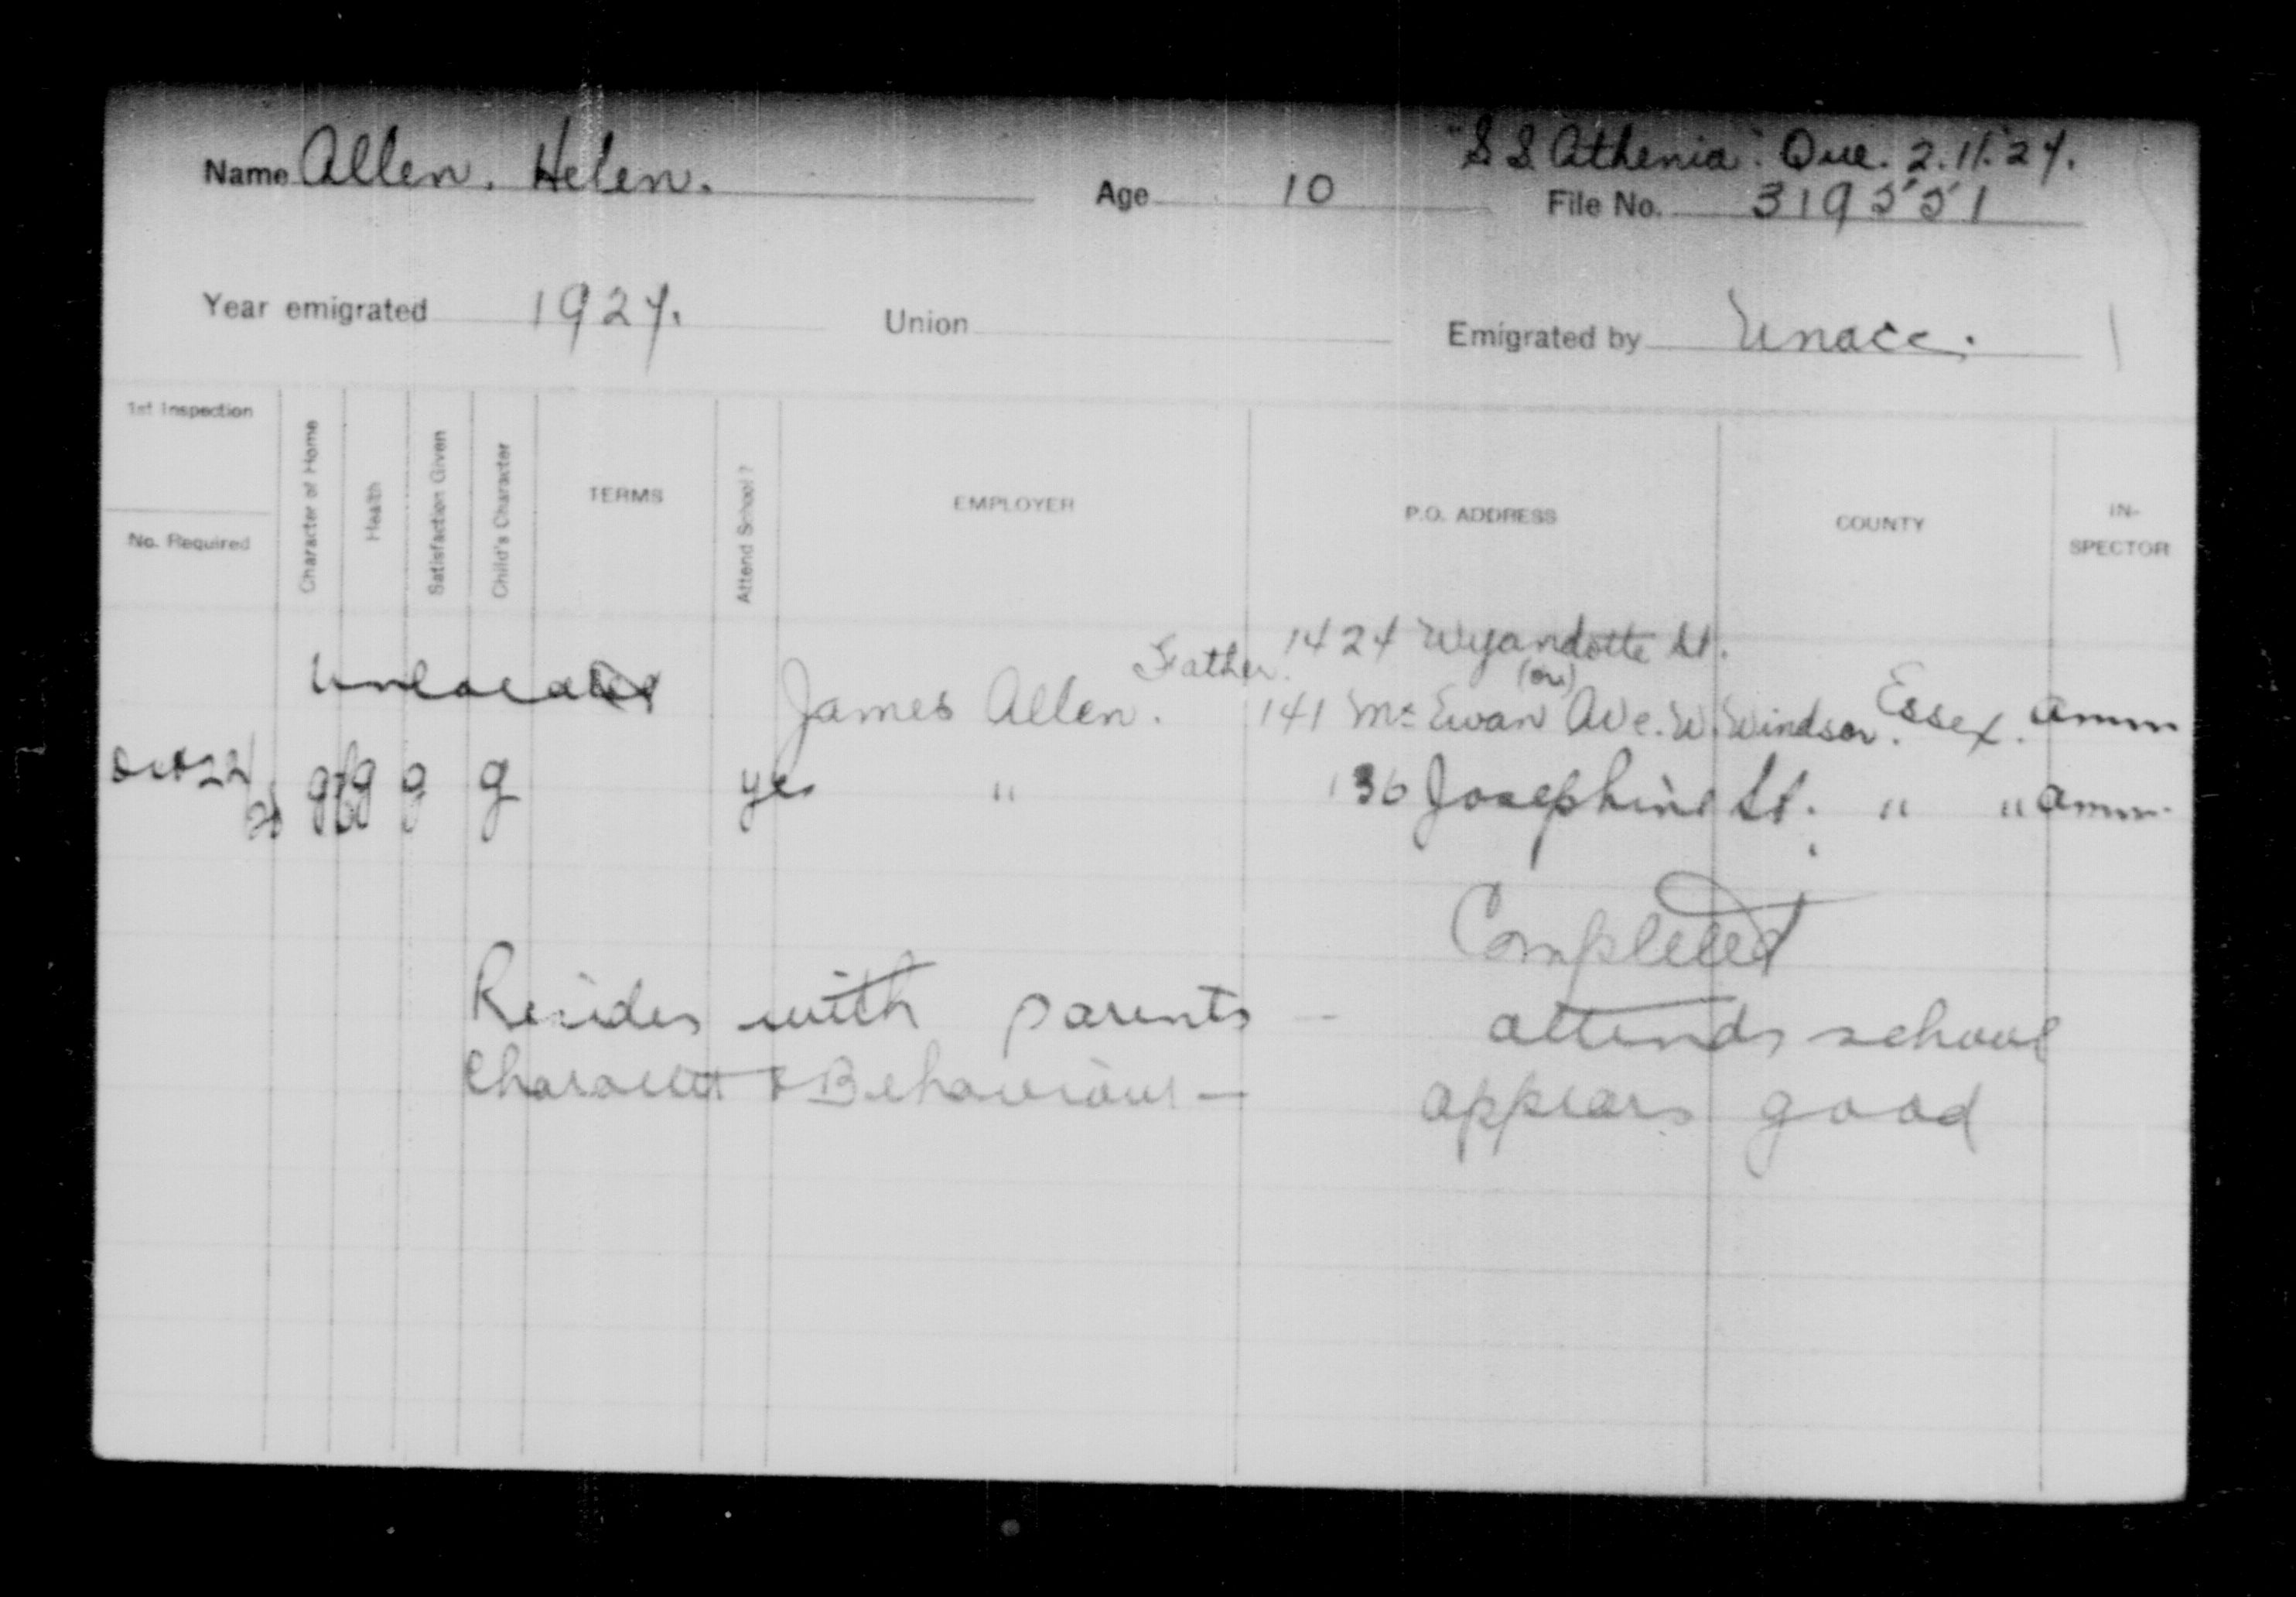 "S.S. Athenia". Que. 2.11.27.
Name Allen. Helen. Age 10 File No. 319551
Year emigrated 1927. Union Emigrated by Unacc.
1st Inspection
No. Required
Character of Home
Health
Satisfaction Given
Child's Character
TERMS
Attend School?
EMPLOYER
P.O. ADDRESS
COUNTY
IN-
SPECTOR
Father. 1424 Wyandotte St.
(or)
James Allen. 141 Mc Ewan Ave. W. Windsor. Essex.
g g g g yes " 136 Josephine St. " "
Completed
Resides with parents — attends school
Character & Behaviour — appears good